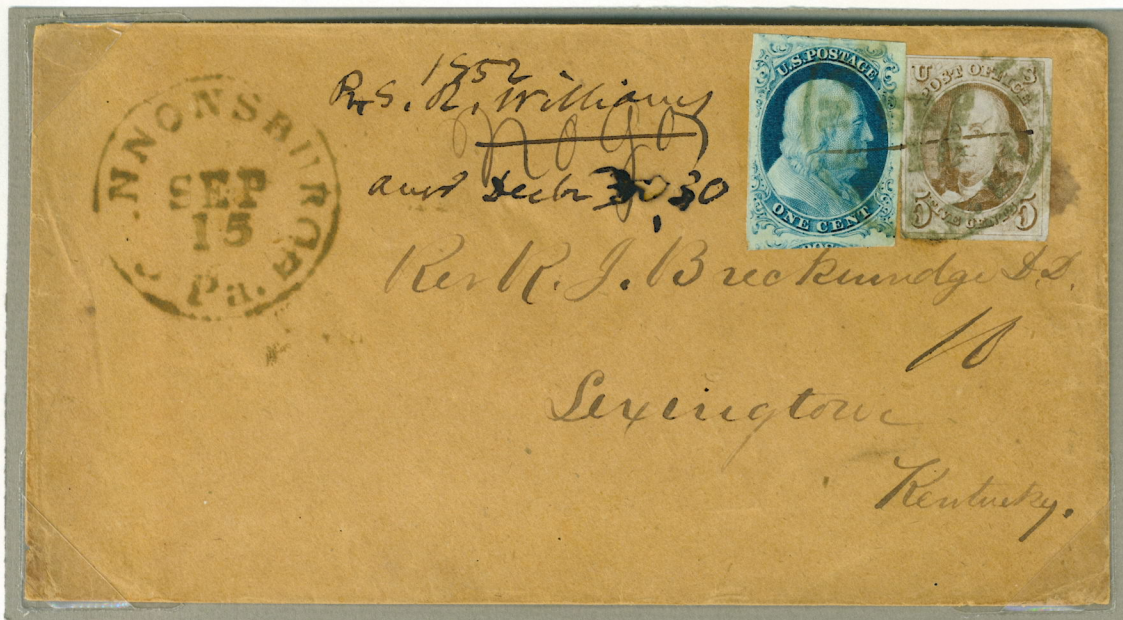 .NNONSBURG
SEP
15
Pa.
1852
R. Williams
Decbr 30
U.S. POSTAGE
ONE CENT
U S
POST OFFICE
FIVE CENTS
5 5
Rev R. J. Breckinridge D.D.
10
Lexingtown
Kentucky.